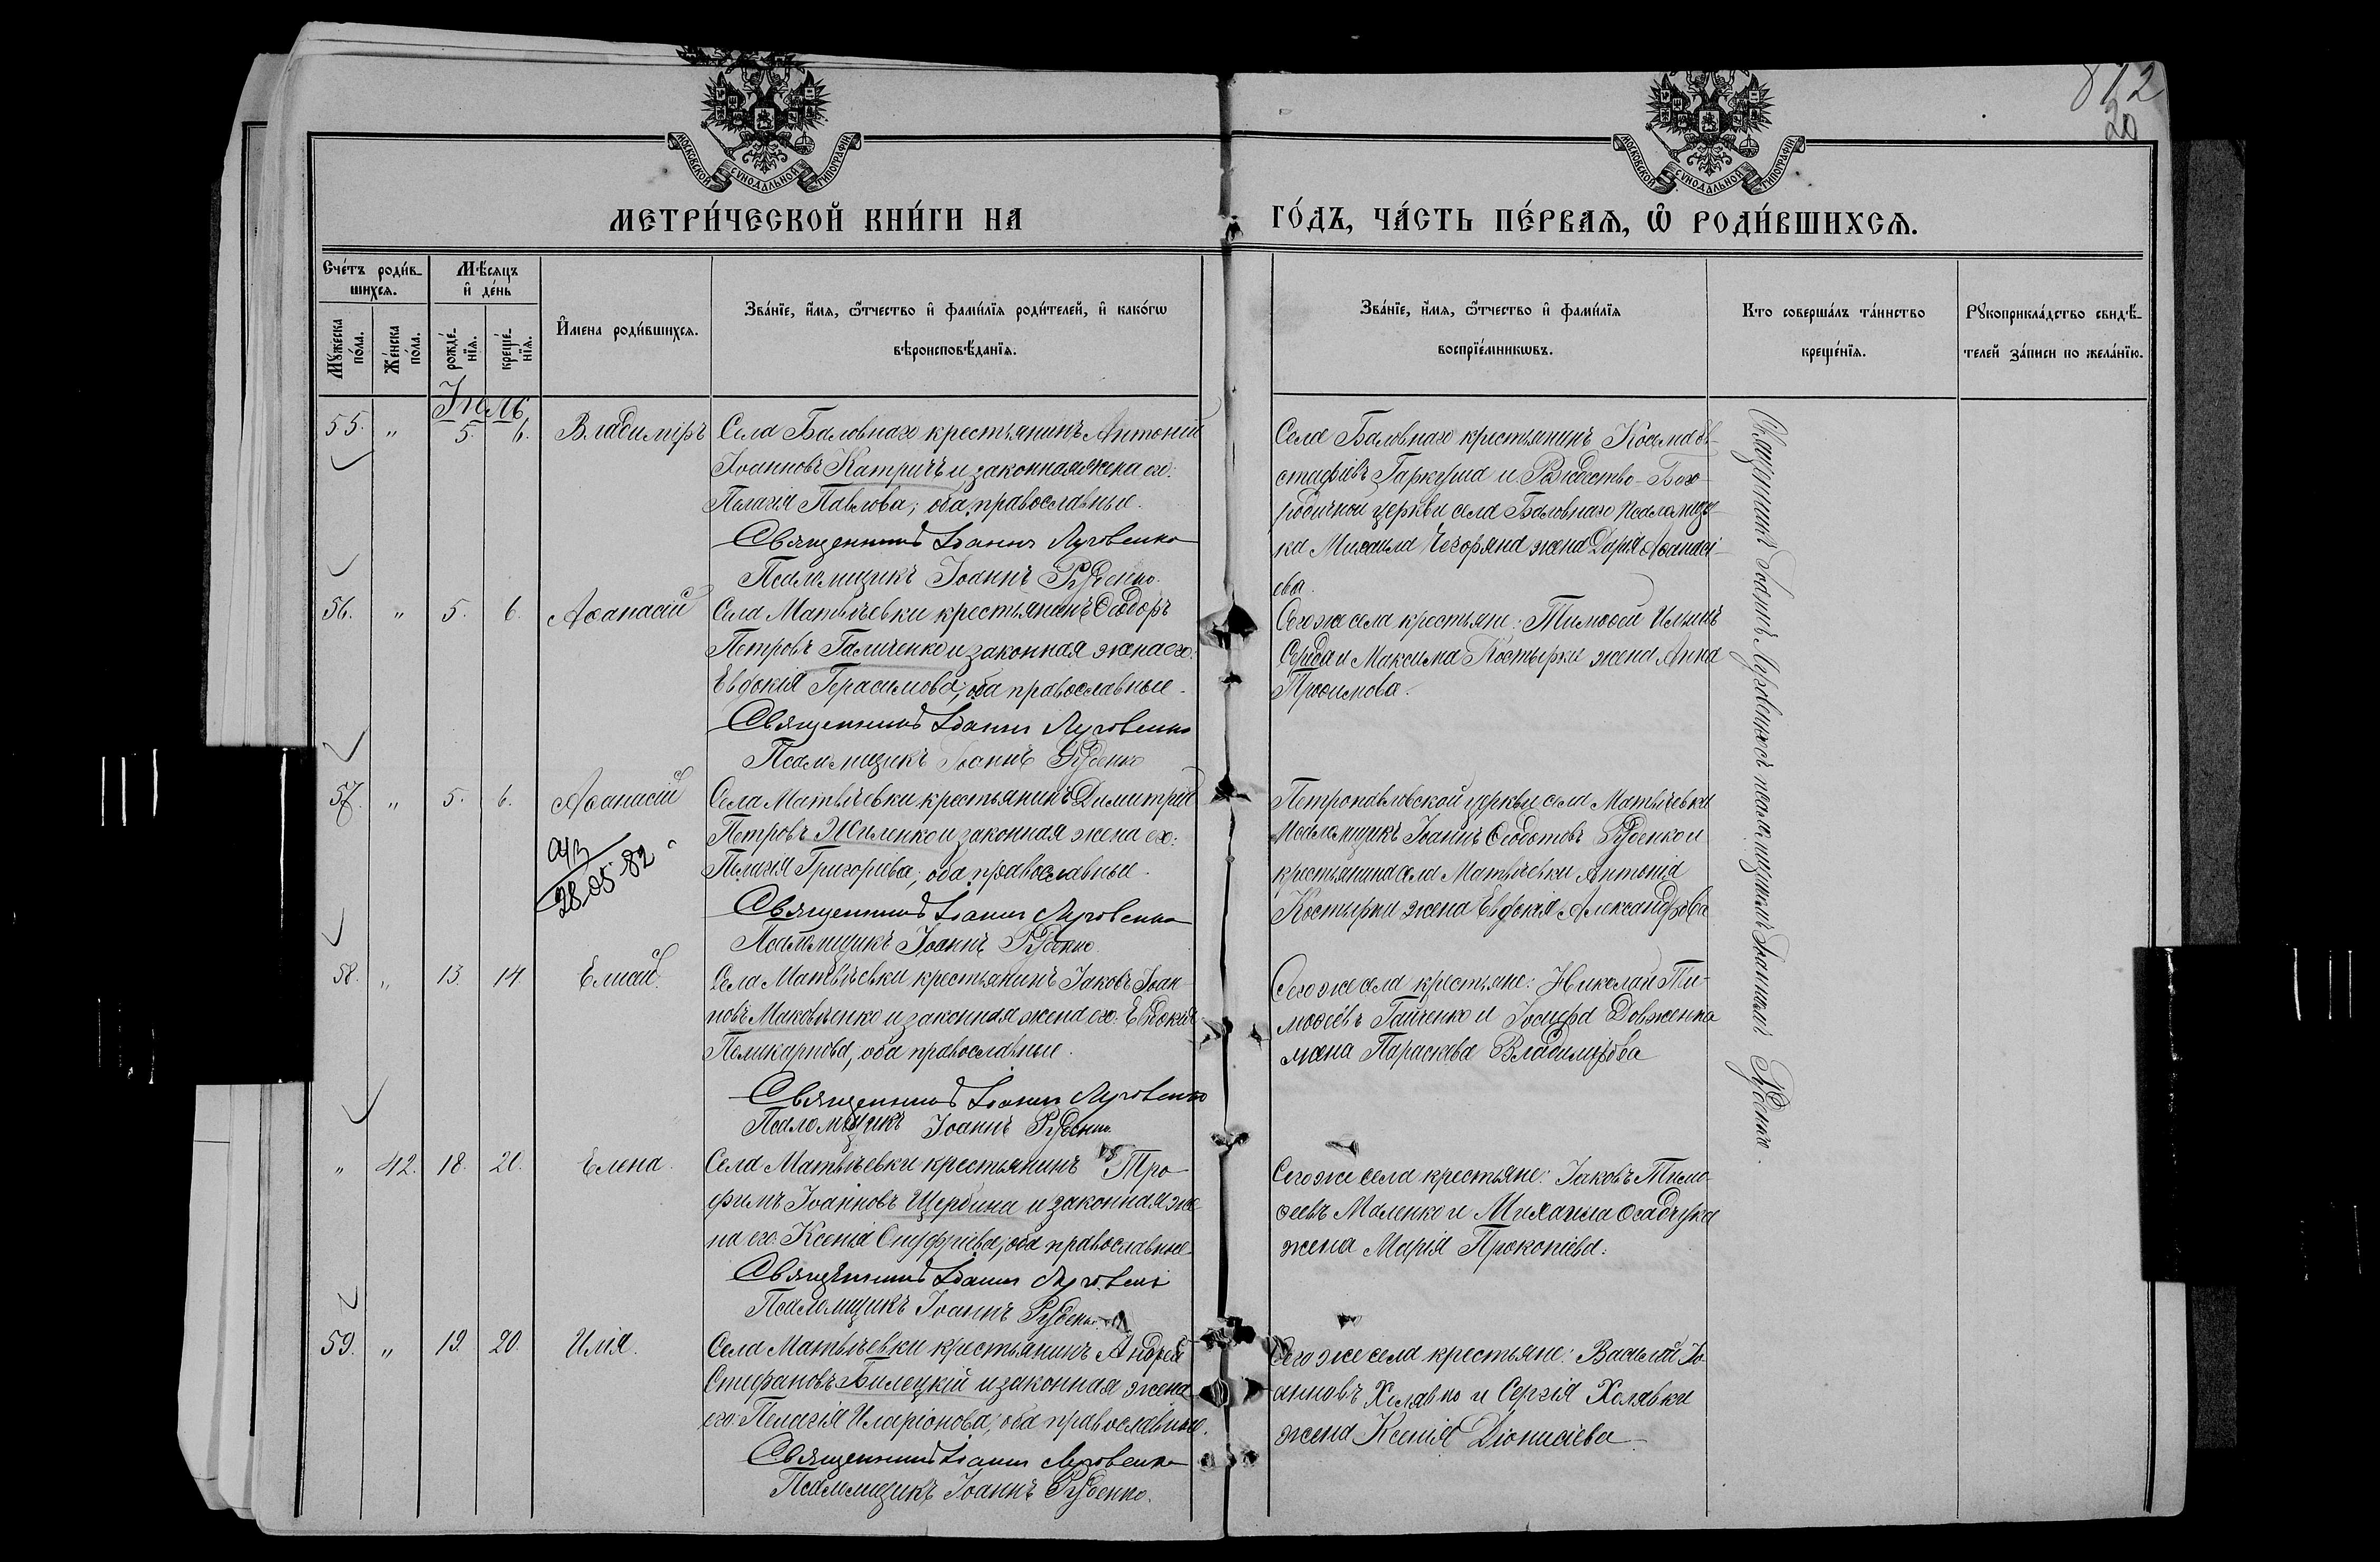 812
20
МОСКОВСКОЙ СѴНОДАЛЬНОЙ ТИПОГРАФІИ
МОСКОВСКОЙ СѴНОДАЛЬНОЙ ТИПОГРАФІИ
МЕТРИ́ЧЕСКОЙ КНИ́ГИ НА ГО́ДЪ, ЧА́СТЬ ПЕ́РВАѦ, Ѽ РОДИ́ВШИХСѦ.
Сче́тъ роди́в-
шихсѧ.
Мѣ́сѧцъ
и҆ де́нь
Мꙋ́жеска по́ла.
Же́нска по́ла.
рожде́-
нїѧ.
креще́-
нїѧ.
И҆мена роди́вшихсѧ.
Зва́нїе, и҆́мѧ, ѻ҆́тчество и҆ фами́лїѧ роди́телей, и҆ како́гѡ
вѣроисповѣ́данїѧ.
Зва́нїе, и҆́мѧ, ѻ҆́тчество и҆ фами́лїѧ
воспрїе́мникѡвъ.
Кто соверша́лъ та́инство
креще́нїѧ.
Рꙋкоприкла́дство свидѣ́-
телей за́писи по жела́нїю.
Іюль
55. „ 5. 6. Владиміръ
Села Баловнаго крестьянинъ Антоній
Іоанновъ Катричъ и законная жена его:
Пелагія Павлова; оба православные.
Священникъ Іоаннъ Луговенко
Псаломщикъ Іоаннъ Руденко.
Села Баловнаго крестьянинъ Косма Ев-
стафіевъ Гаркуша и Рождество-Бого-
родичной церкви села Баловнаго псаломщи-
ка Михаила Чегоряна жена Дарія Аѳанасі-
ева.
56. „ 5. 6. Аѳанасій
Села Матвѣевки крестьянинъ Ѳеодоръ
Петровъ Галиченко и законная жена его:
Евдокія Герасимова; оба православные.
Священникъ Іоаннъ Луговенко
Псаломщикъ Іоаннъ Руденко
Того же села крестьяне: Тимоѳей Ильинъ
Середа и Максима Костырки жена Анна
Троѳимова.
57. „ 5. 6. Аѳанасій
28.05-82
Села Матвѣевки крестьянинъ Димитрій
Петровъ Жиленко и законная жена его:
Пелагія Григорьева; оба православные.
Священникъ Іоаннъ Луговенко
Псаломщикъ Іоаннъ Руденко.
Петропавловской церкви села Матвѣевки
псаломщикъ Іоаннъ Ѳеодотовъ Руденко и
крестьянина села Матвѣевки Антонія
Костырки жена Евдокія Александрова
58. „ 13. 14. Елисей.
Села Матвѣевки крестьянинъ Іаковъ Іоан-
новъ Маковѣенко и законная жена его: Евдокія
Поликарпова; оба православные.
Священникъ Іоаннъ Луговенко
Псаломщикъ Іоаннъ Руденко
Того же села крестьяне: Николай Ти-
моѳеевъ Гайченко и Іосифа Довженка
жена Параскева Владимірова
„ 42. 18. 20. Елена.
Села Матвѣевки крестьянинъ Тро-
фимъ Іоанновъ Щербина и законная же-
на его: Ксенія Онуфріева; оба православные.
Священникъ Іоаннъ Луговенко
Псаломщикъ Іоаннъ Руденко
Того же села крестьяне: Іаковъ Тимо-
ѳеевъ Маленко и Михаила Осадчука
жена Марія Прокопіева.
59. „ 19. 20. Илія.
Села Матвѣевки крестьянинъ Андрей
Стефановъ Билецкій и законная жена
его: Пелагія Иларіонова; оба православные.
Священникъ Іоаннъ Луговенко
Псаломщикъ Іоаннъ Руденко.
Того же села крестьяне: Василій Іо-
анновъ Халявко и Сергія Халявки
жена Ксенія Діонисіева
Священникъ Іоаннъ Луговенко съ псаломщикомъ Іоанномъ Руденко.